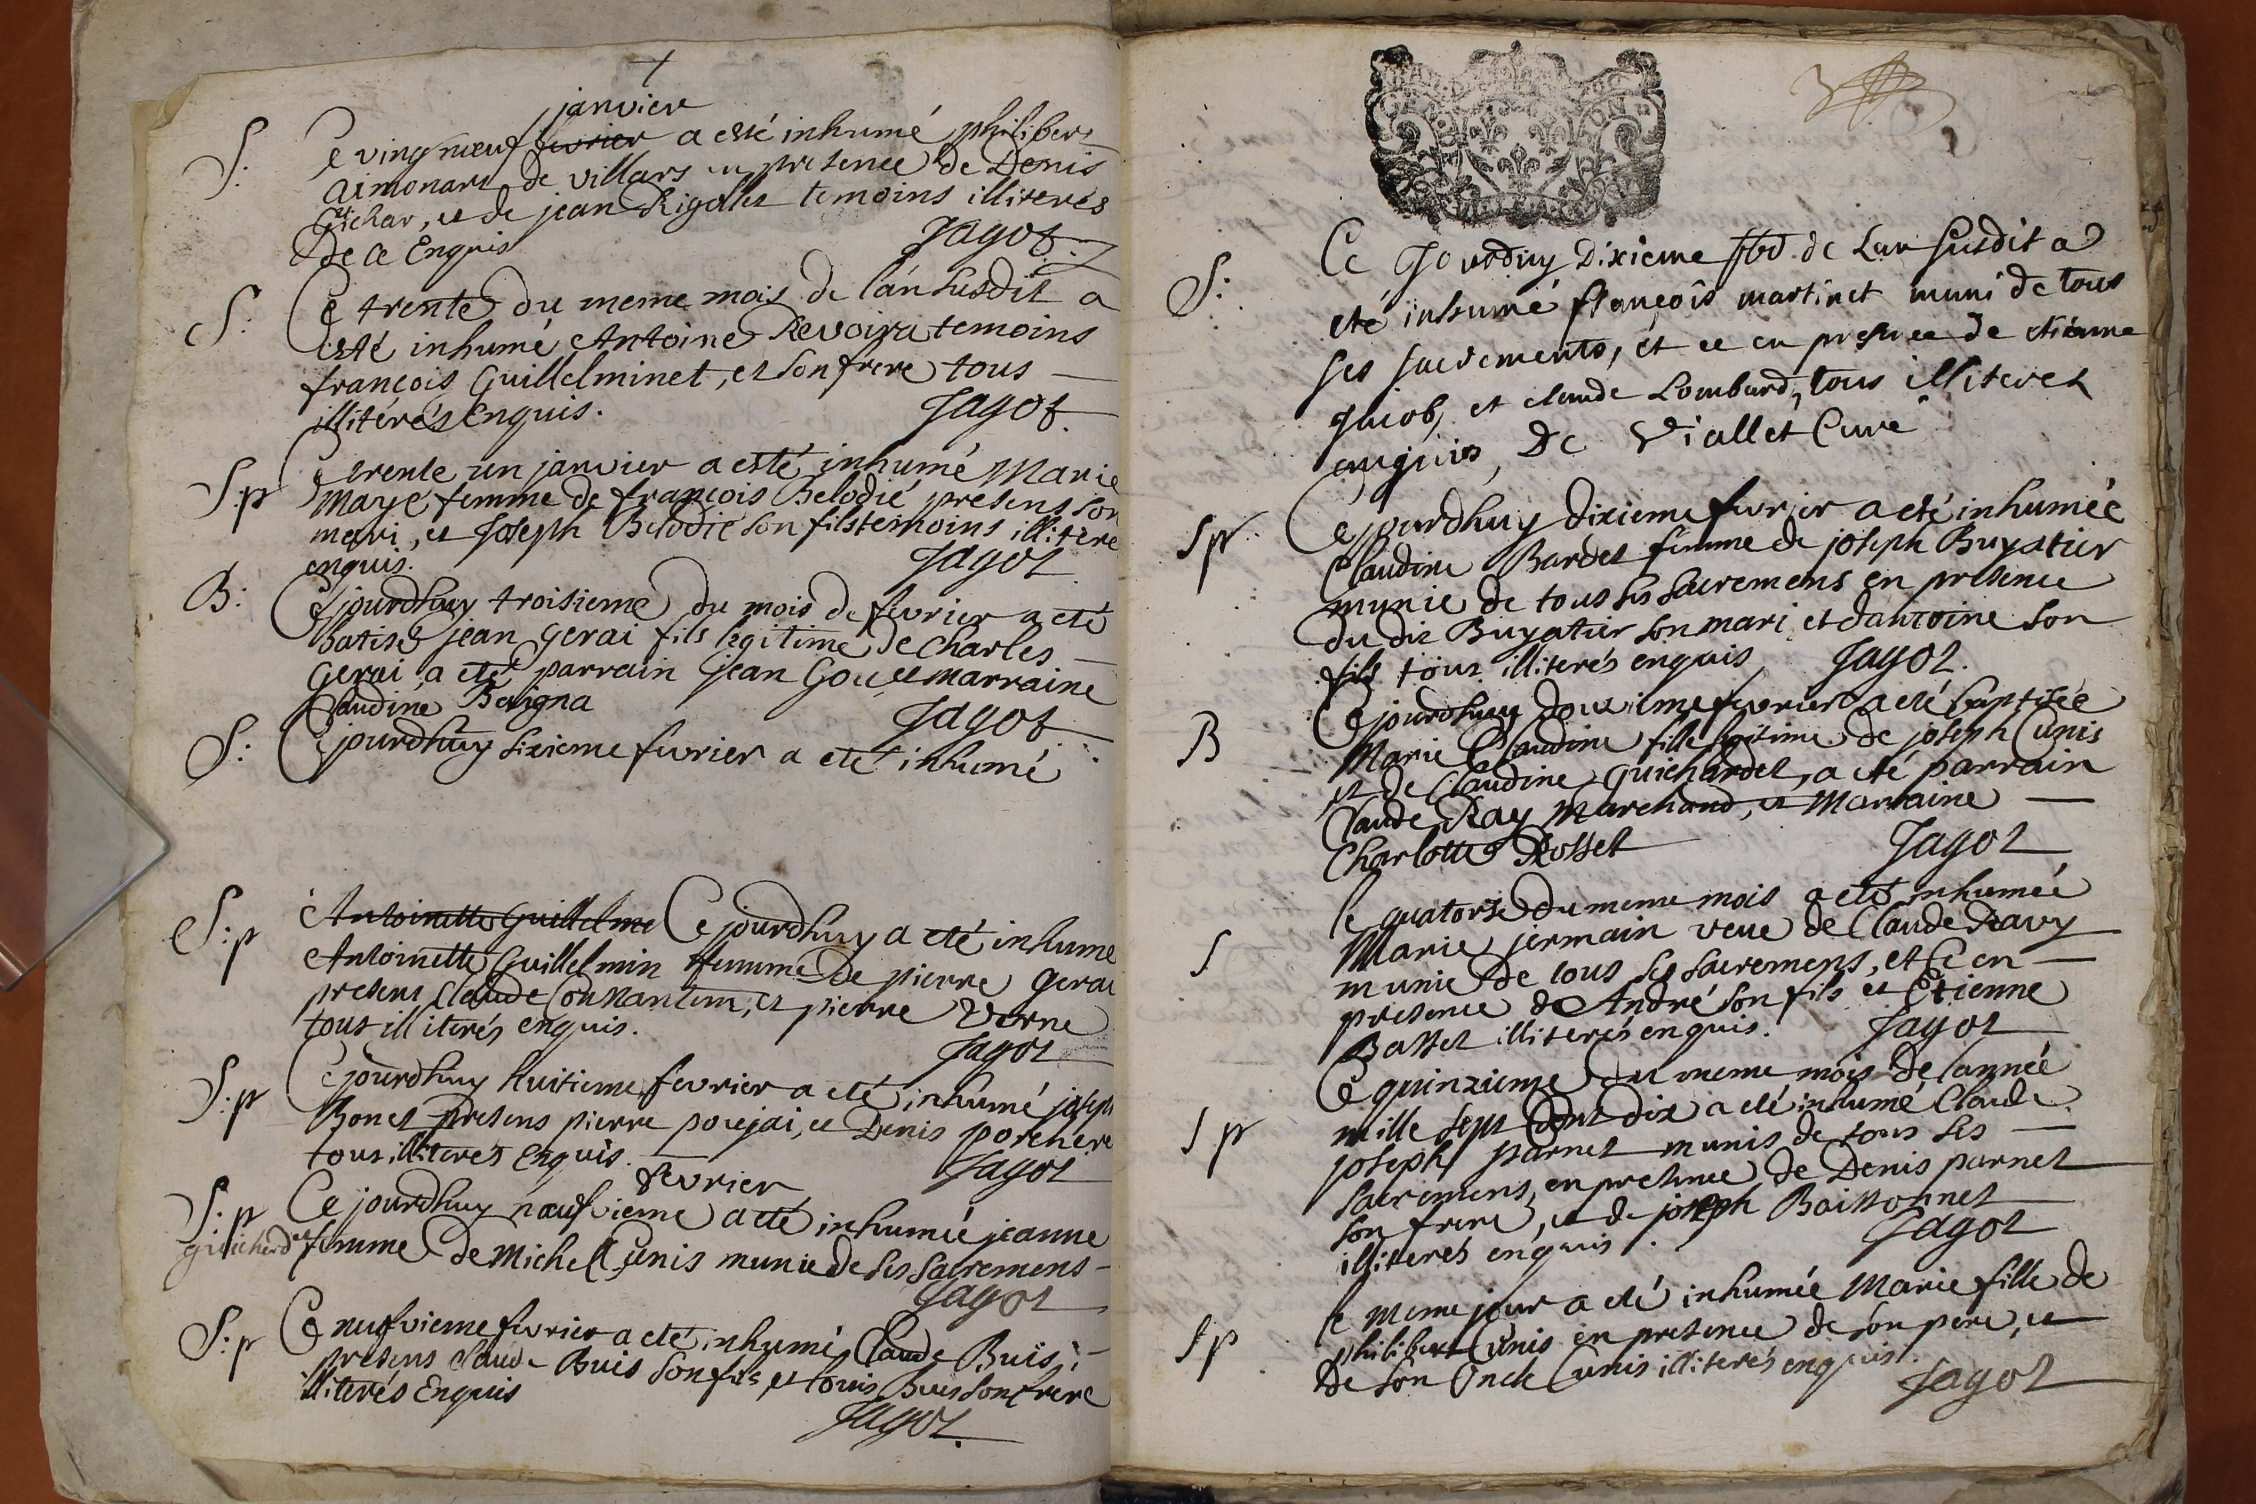 janvier
S: Ce vingneuf fevrier a esté inhumé philiber
aimonars de villars en presence de Denis
Guichar, et de jean Rigolles temoins illiterés
de ce Enquis Jagot
S: Ce trente du meme mois de l'an susdit a
esté inhumé Antoine Revoira temoins
françois Guillelminet, et son frere tous
illitérés enquis. Jagot.
S:p Ce trente un janvier a esté inhumé Marie
Mayé femme de françois Belodié presens son
mari, et Joseph Belodié son fils temoins illitere
enquis. Jagot
B: Ce jourdhuy troisieme du mois de fevrier a eté
batisé jean gerai fils legitime de Charles
gerai, a eté parrain jean Gou et marraine
Claudine Barigna Jagot
S: Ce jourdhuy sixieme fevrier a eté inhumé
S:p Antoinette Guillelme Ce jourdhuy a eté inhume
Antoinette Guillelmin femme de pierre gerai
presens Claude Constantin, et pierre Verne
tous illiterés enquis. Jagot
S:p Ce jourdhuy huitieme fevrier a eté inhumé joseph
Bonet presens pierre pouejai, et Denis porchere
tous illiterés enquis. Jagot
fevrier
S:p Ce jourdhuy neufvieme a eté inhumée jeanne
guicherdet femme de Michel Cunis munie de ses sacremens
Jagot
S:p Ce neufvieme fevrier a eté inhumé Claude Buis
presens Claude Buis son fils et louis Buis son frere
illiterés Enquis
Jagot.
Ce Jourdhuy Dixieme fbr. de Lan susdit a
S: eté inhumé françois martinet muni de tous
ses sacrements, et ce en presence de etienne
jacob, et claude Lombard, tous illiteres
enquis, De Viallet Curé
Sp. Ce jourdhuy dixieme fevrier a eté inhumée
Claudine Bardet femme de joseph Buyatier
munie de tous ses sacremens en presence
du dit Buyatier son mari et dantoine son
fils tous illiterés enquis Jagot.
B Ce jourdhuy douzieme fevrier a eté baptisée
Marie Claudine fille legitime de joseph Cunis
et de Claudine guichardet, a eté parrain
Claude Ray Marchand, et Marraine
Charlotte Rosset Jagot
le quatorse du meme mois a eté inhumée
S Marie jermain veue de Claude Ravy
munie de tous ses sacremens, et Ce en
presence de André son fils et Etienne
Basset illiterés enquis. Jagot
Ce quinzieme du meme mois de lannée
Sp mille sept Cent dix a eté inhumé Claude
joseph parnet munis de tous ses
sacremens, en presence de Denis parnet
son frere, et de joseph Boissonnet
illiterés enquis. Jagot
le meme jour a eté inhumée Marie fille de
Sp philibert Cunis en presence de son pere, et
de son Oncle Cunis illiterés enquis.
Jagot